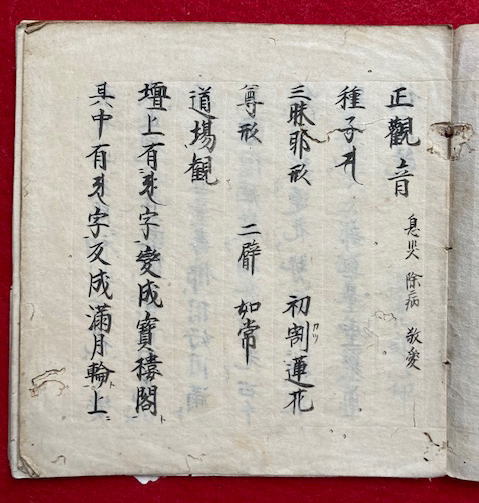 正觀音 息災 除病 敬愛
種子
三昧耶形 初割蓮花
尊形 二臂 如常
道場観
壇上有字變成寶樓閣
其中有字反成滿月輪上